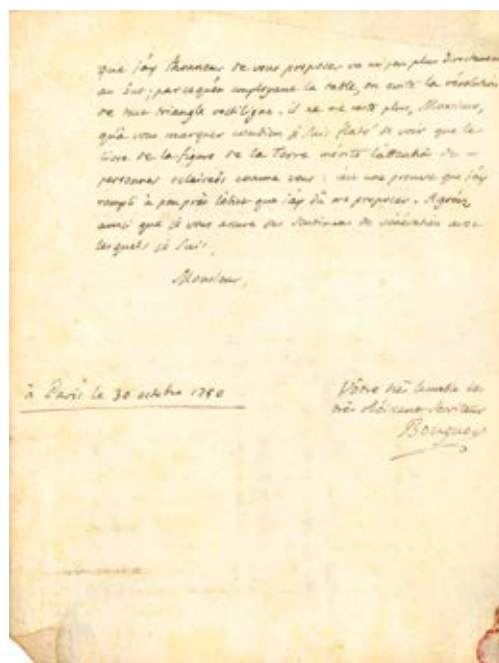 que j'ay l'honneur de vous proposer va un peu plus directement
au but; parcequ'en employant la table, on evite la résolution
de tout triangle rectiligne. il ne me reste plus, Monsieur,
qu'à vous marquer combien je suis flaté de voir que le
livre de la figure de la Terre mérite l'attention de
personnes eclairées comme vous: c'est une preuve que j'ay
rempli à peu près l'objet que j'ay dû me proposer. Agréez
aussi que je vous assure des sentimens de vénération avec
lesquels je suis,
Monsieur,
à Paris le 30 octobre 1750
Vôtre très humble et
très obéissant serviteur
Bouguer